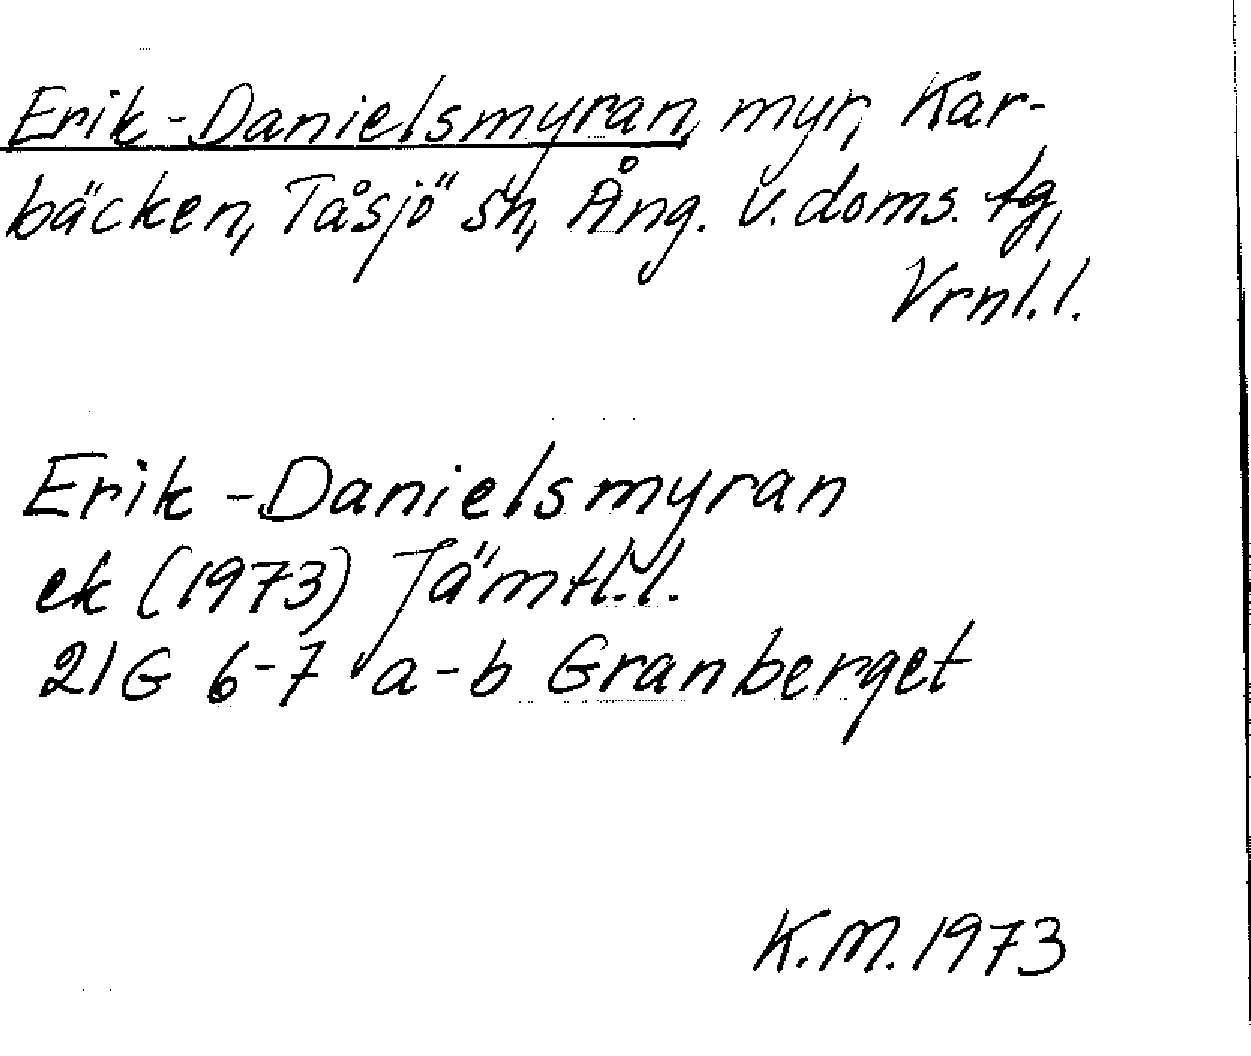 Erik-Danielsmyran, myr, Kar-
bäcken, Tåsjö sn, Ång. v. doms. tg,
Vrnl. l.
Erik-Danielsmyran
ek (1973) Jämtl. l.
21G 6-7 a-b Granberget
K.M. 1973